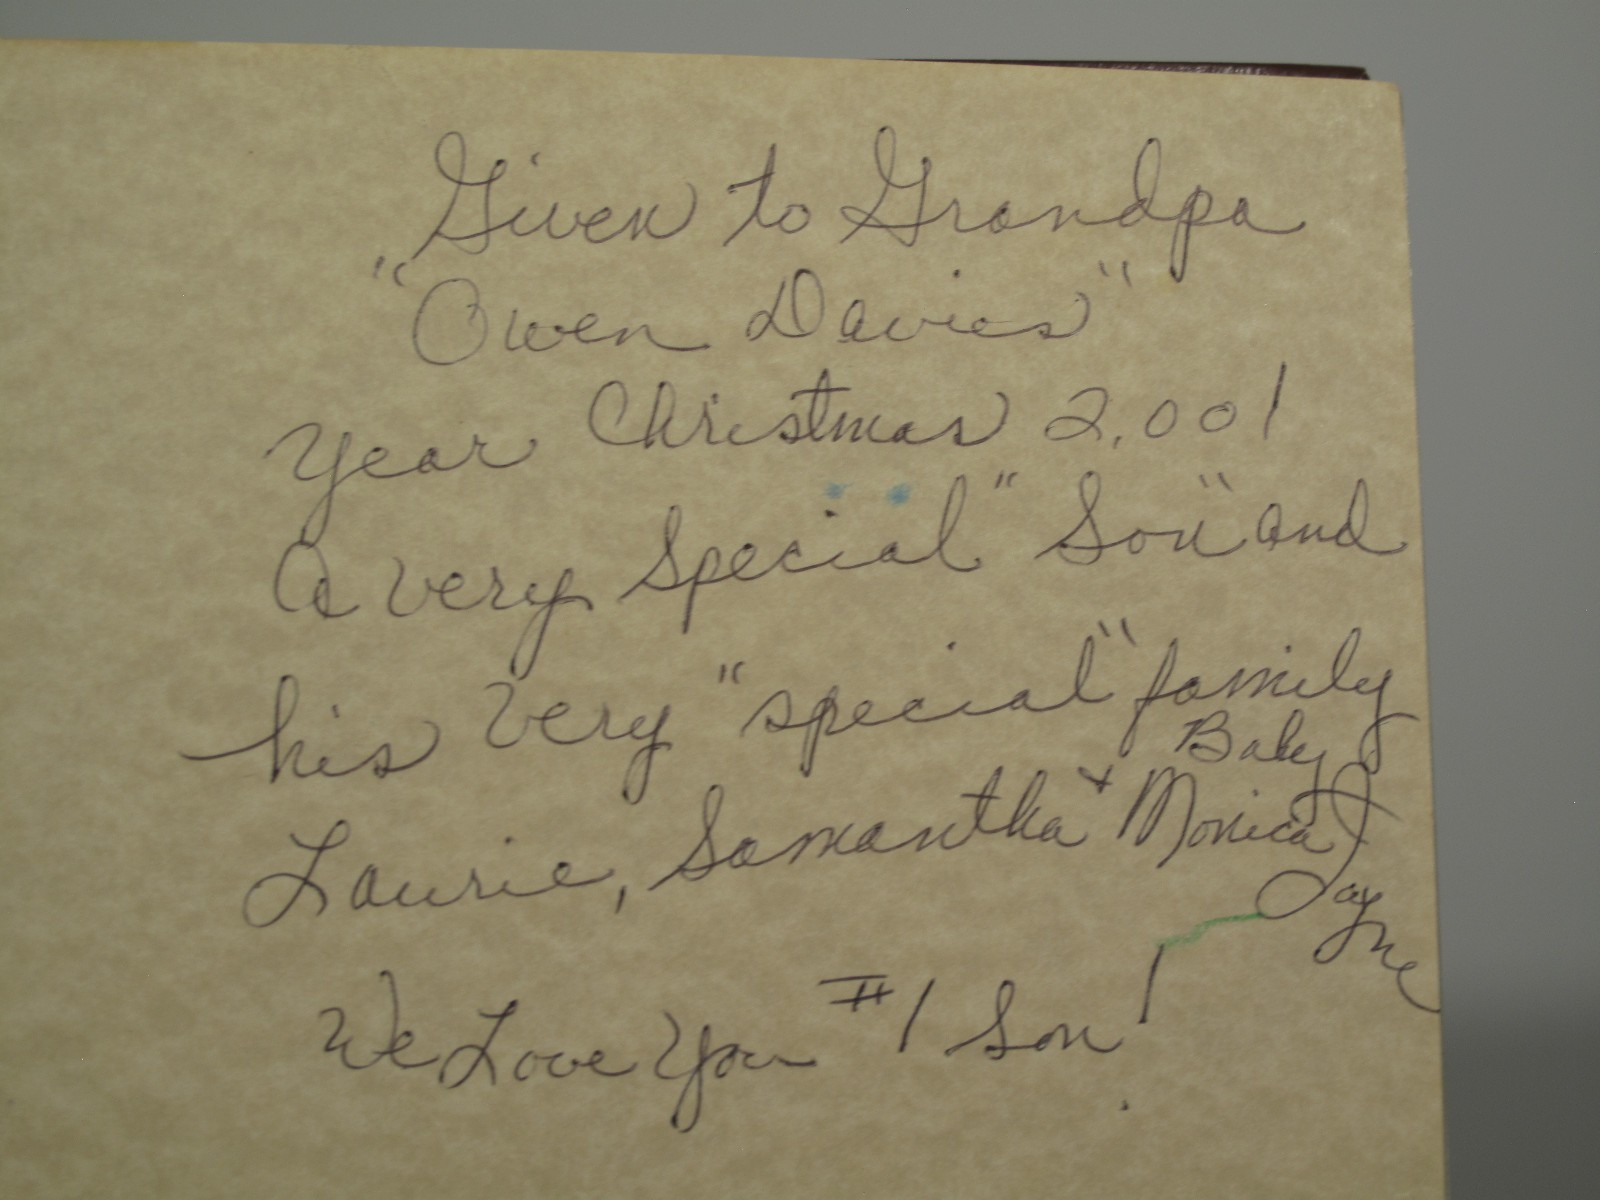 Given to Grandpa
"Owen Davies"
Year Christmas 2,001
A very special "Son" and
his very "special" family
Baby
Laurie, Samantha + Monica Jayne
We Love You #1 Son!